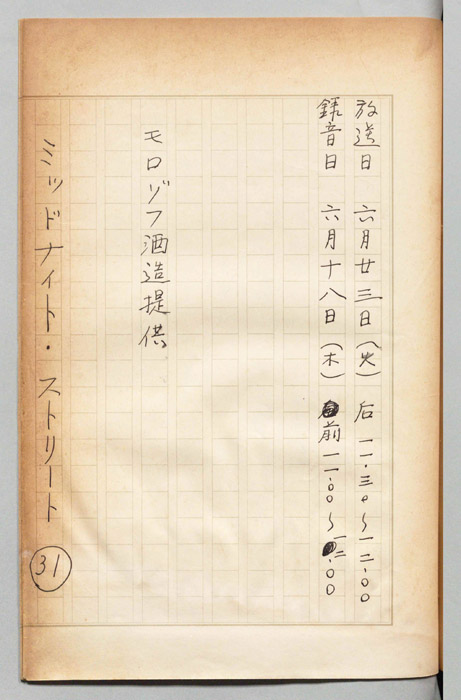 放送日 六月廿三日(火) 后 一一・三〇~一二・〇〇
録音日 六月十八日(木) 前 一一・〇〇~一二・〇〇
モロゾフ酒造提供
ミッドナイト・ストリート 31